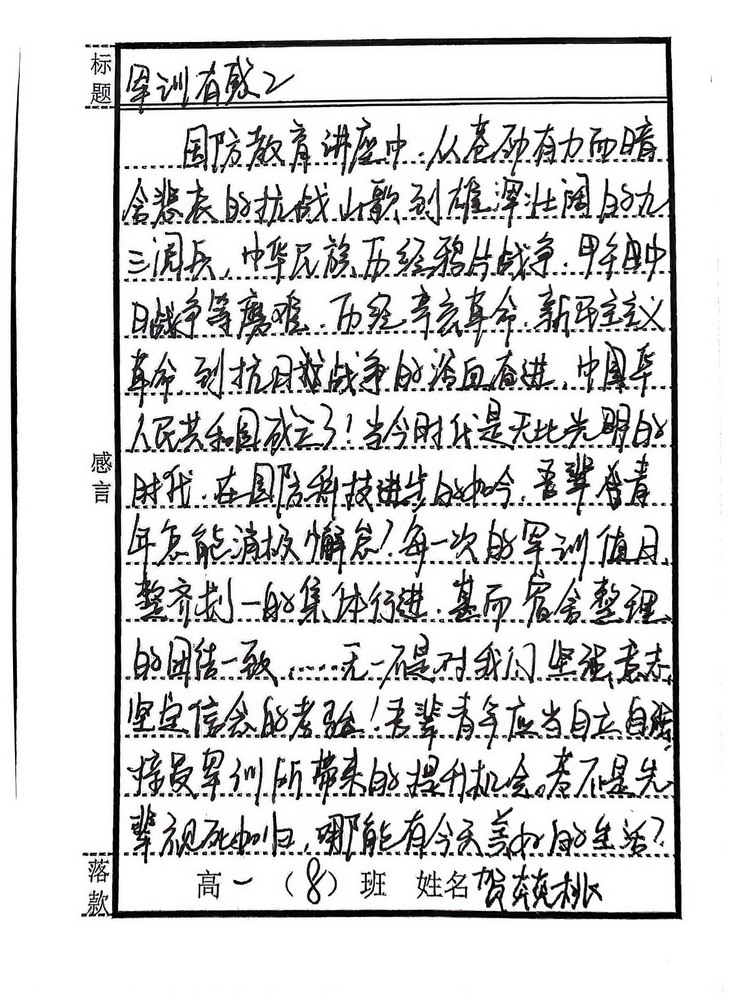 标题
军训有感2
国防教育讲座中,从苍劲有力而暗
含悲哀的抗战山歌到雄浑壮阔的九
三阅兵,中华民族历经鸦片战争,甲午中
日战争等磨难,历经辛亥革命,新民主主义
革命,到抗日战争的浴血奋进,中国华
人民共和国成立了!当今时代是无比光明的
时代,在国防科技进步的如今,吾辈青
年怎能消极懈怠?每一次的军训值日、
整齐划一的集体行进,甚而宿舍整理
的团结一致……无一不是对我们坚强意志,
坚定信念的考验!吾辈青年应当自立自强
接受军训所带来的提升机会。若不是先
辈视死如归,哪能有今天美好的生活?
感言
落款
高一(8)班 姓名 贺